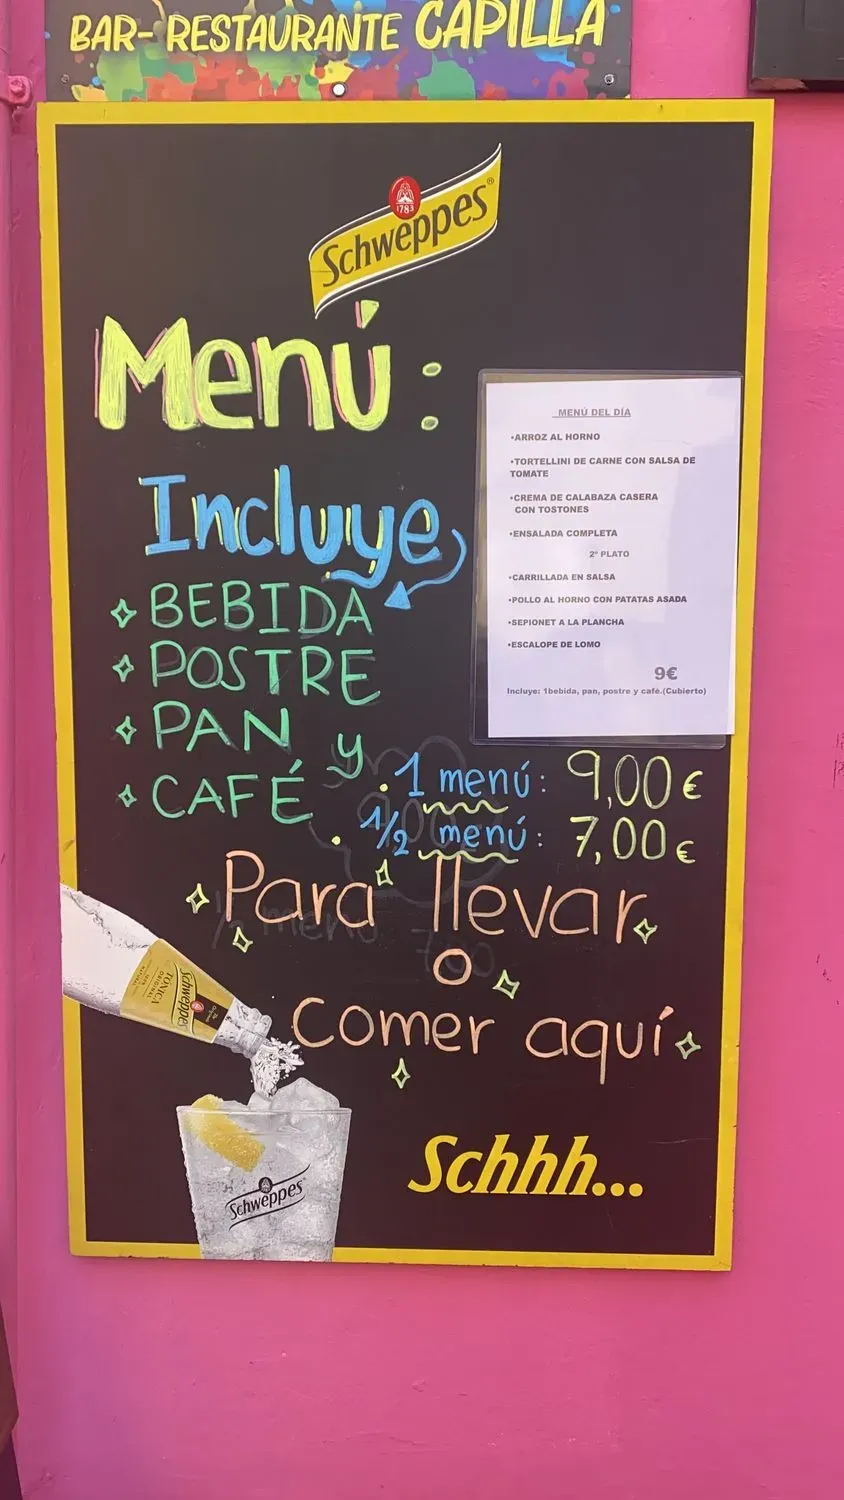 BAR- RESTAURANTE CAPILLA
1783
Schweppes®
Menú:
Incluye
BEBIDA
POSTRE
PAN y
CAFÉ
MENÚ DEL DÍA
•ARROZ AL HORNO
•TORTELLINI DE CARNE CON SALSA DE
TOMATE
•CREMA DE CALABAZA CASERA
CON TOSTONES
•ENSALADA COMPLETA
2º PLATO
•CARRILLADA EN SALSA
•POLLO AL HORNO CON PATATAS ASADA
•SEPIONET A LA PLANCHA
•ESCALOPE DE LOMO
9€
Incluye: 1bebida, pan, postre y café.(Cubierto)
. 1 menú: 9,00€
. 1/2 menú: 7,00€
Para llevar
o
Comer aquí
1/2 menú 7,00
Schweppes
TÓNICA
ORIGINAL
Schhh...
Schweppes